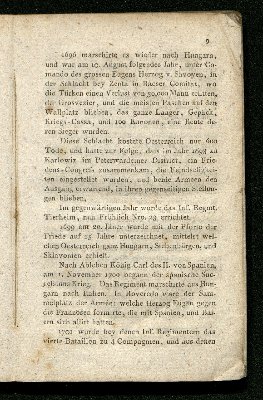 9
1696 marschirte es wieder nach Hungarn,
und war am 10. August folgendes Jahr, unter Co-
mando des grossen Eugens Herzog v. Savoyen, in
der Schlacht bey Zenta in Bacser Comitat, wo
die Türken einen Verlust von 30,000 Mann erlitten,
der Grosvezier, und die meisten Paschen auf den
Wallplatz blieben, das ganze Lager, Gepäck,
Kriegs-Cassa, mit 100 Kanonen, eine Beute de-
ren Sieger wurden.
Diese Schlacht kostete Oesterreich nur 600
Todte, und hatte zur Folge, dass im Jahr 1698 zu
Karlowitz im Peterwardeiner District, ein Frie-
dens-Congress zusammenkam, die Feindseligkei-
ten eingestellet wurden, und beide Armeen den
Ausgang erwartend, in ihren gegenseitigen Stellun-
gen blieben.
Im gegenwärtigen Jahr wurde das Inf. Regmt.
Tierheim, nun Fröhlich Nro. 28 errichtet.
1699 am 26. Jäner wurde mit der Pforte der
Friede auf 25 Jahre unterzeichnet, mittelst wel-
chen Oesterreich ganz Hungarn, Siebenbürgen, und
Sklavonien erhielt.
Nach Ableben König Carl des II. von Spanien,
am 1. November 1700 begann der spanische Suc-
cessions Krieg. Das Regiment marschirte aus Hun-
garn nach Italien. In Roveredo ware der Sam-
melplatz der Armee; welche Herzog Eugen gegen
die Franzosen formirte, die mit Spanien, und Bai-
ern sich allirt hatten.
1701 wurde bey denen Inf. Regimentern das
vierte Bataillon zu 4 Compagnien, und aus denen